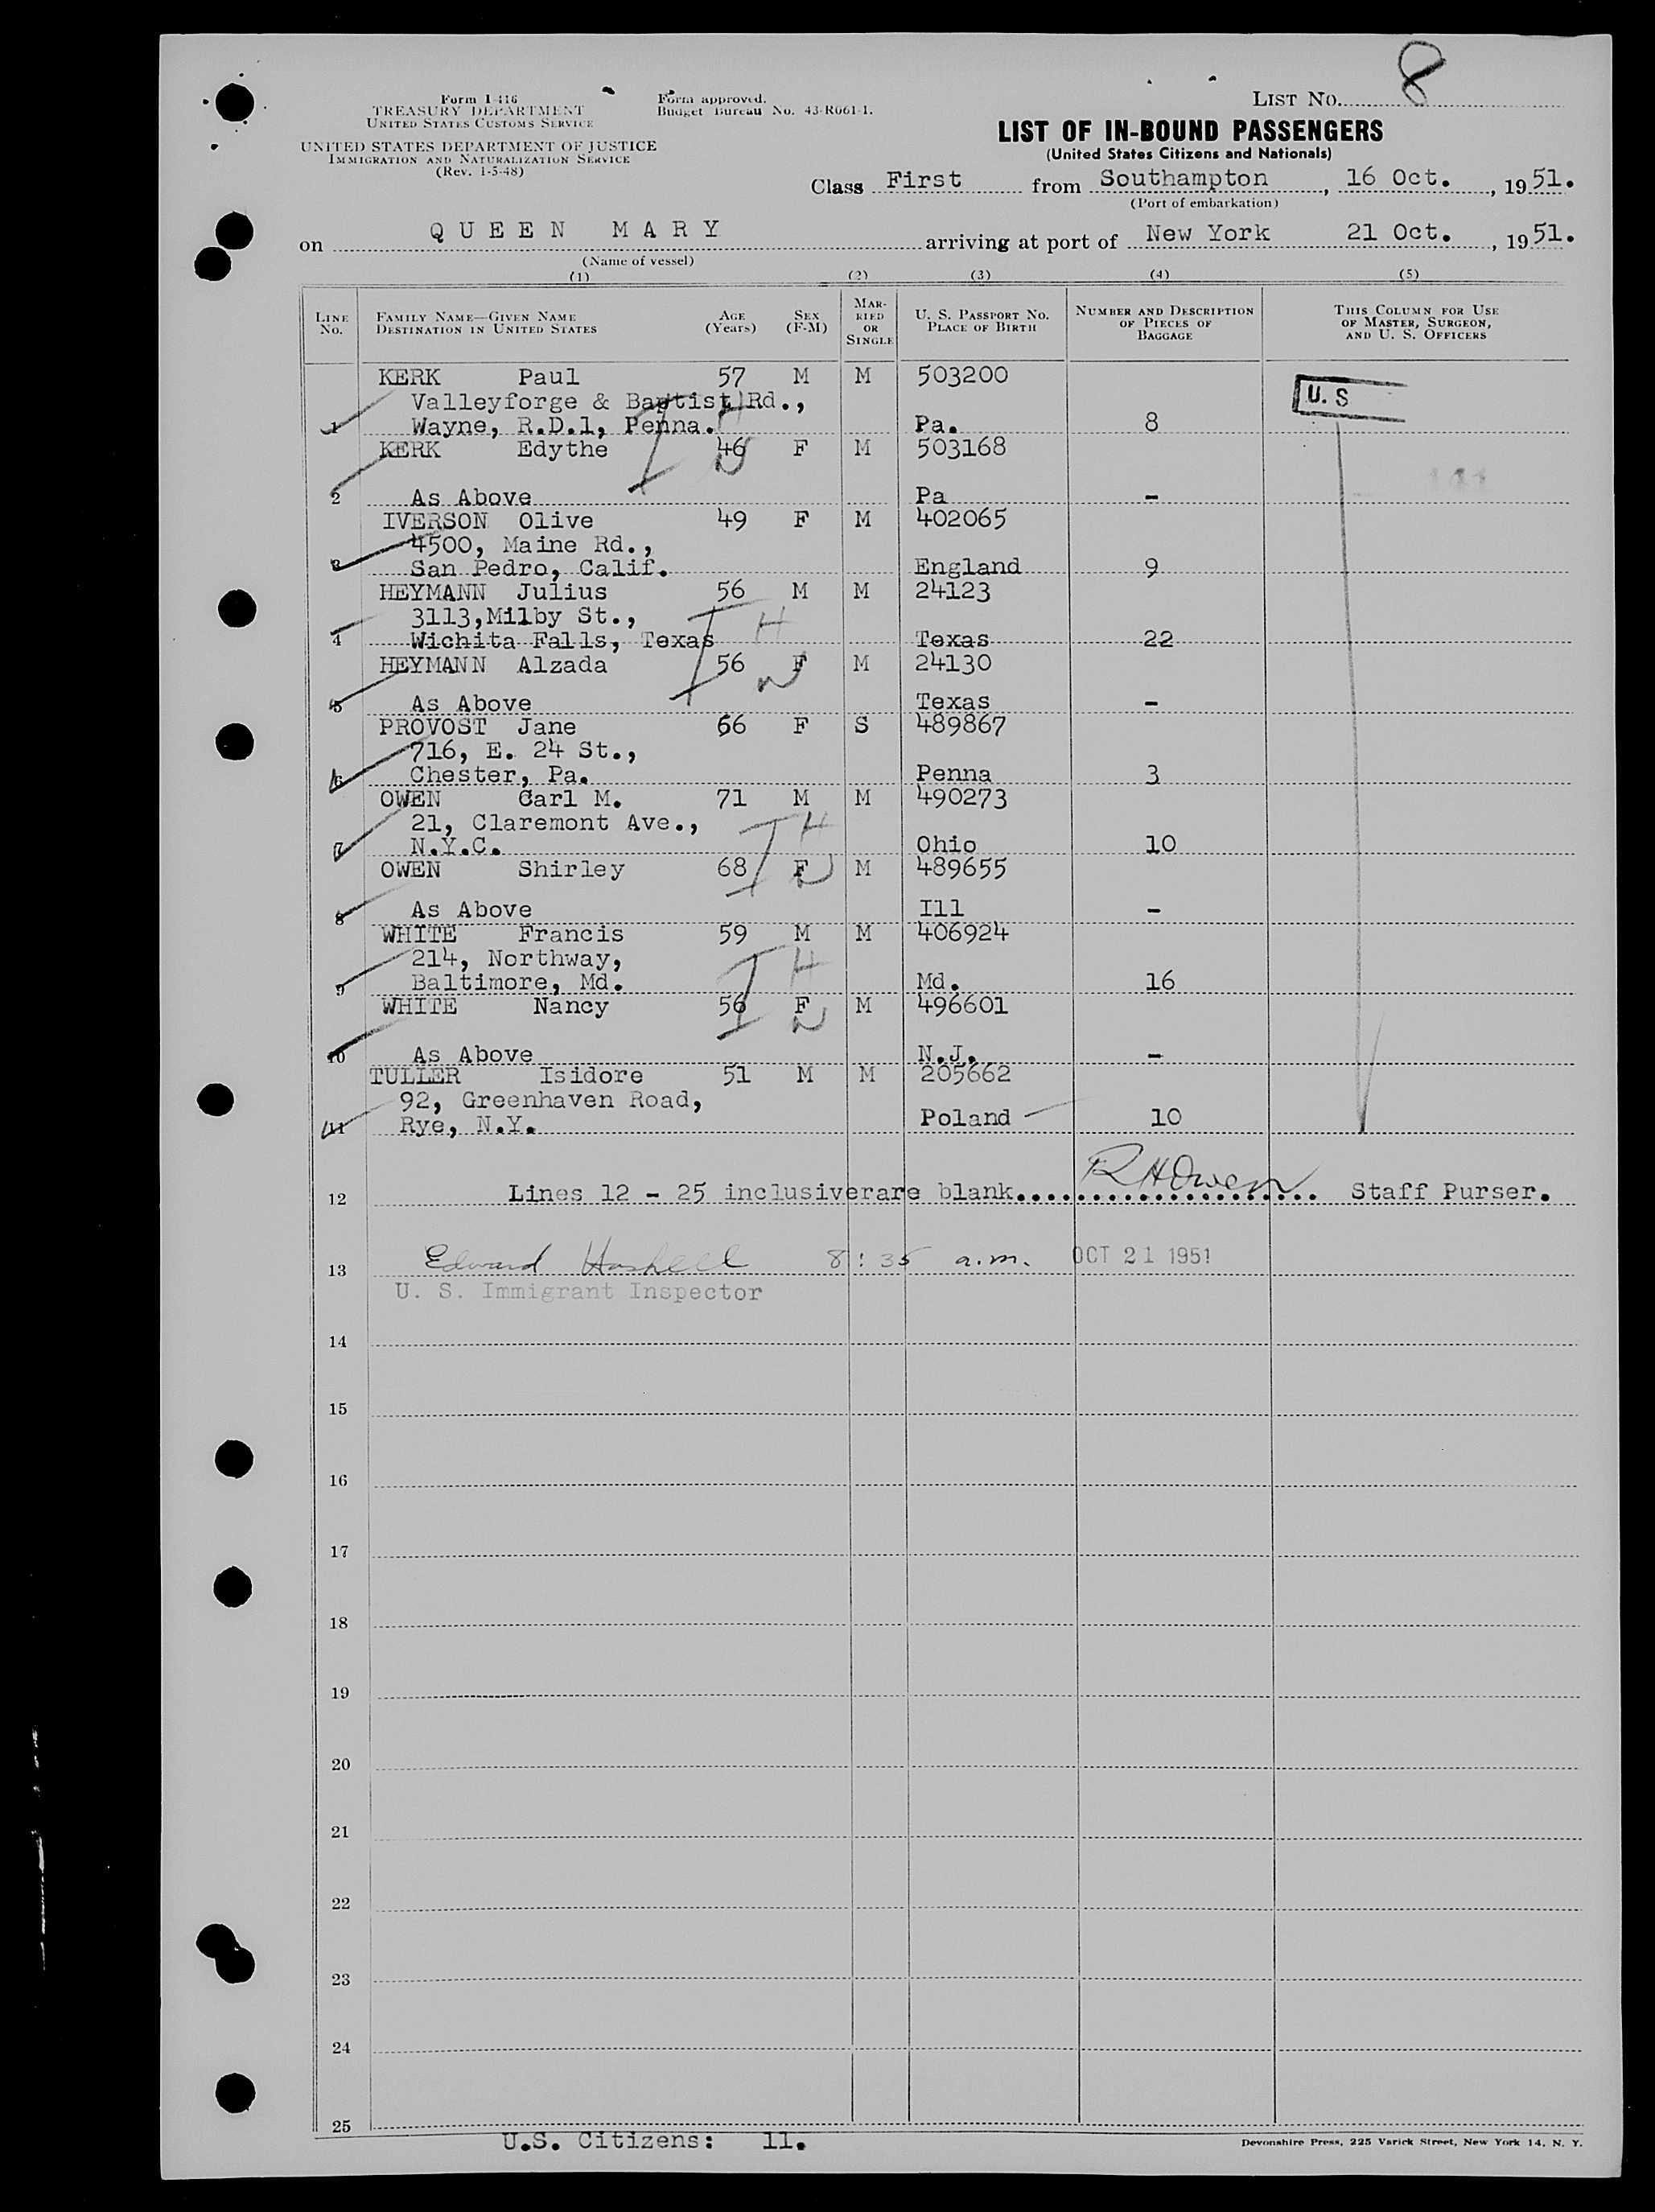 LIST NO. 8
Form I-416
TREASURY DEPARTMENT
UNITED STATES CUSTOMS SERVICE
Form approved.
Budget Bureau No. 43-R061-1.
UNITED STATES DEPARTMENT OF JUSTICE
IMMIGRATION AND NATURALIZATION SERVICE
(Rev. 1-5-48)
LIST OF IN-BOUND PASSENGERS
(United States Citizens and Nationals)
Class First from Southampton, 16 Oct., 1951.
(Port of embarkation)
on QUEEN MARY arriving at port of New York 21 Oct., 1951.
(Name of vessel)
(1) (2) (3) (4) (5)
LINE No. FAMILY NAME—GIVEN NAME DESTINATION IN UNITED STATES AGE (Years) SEX (F-M) MARRIED OR SINGLE U. S. PASSPORT NO. PLACE OF BIRTH NUMBER AND DESCRIPTION OF PIECES OF BAGGAGE THIS COLUMN FOR USE OF MASTER, SURGEON, AND U. S. OFFICERS
KERK Paul 57 M M 503200 U. S
Valleyforge & Baptist Rd.,
1 Wayne, R.D.1, Penna. Pa. 8
KERK Edythe 46 F M 503168
2 As Above Pa -
IVERSON Olive 49 F M 402065
4500, Maine Rd.,
3 San Pedro, Calif. England 9
HEYMANN Julius 56 M M 24123
3113,Milby St.,
4 Wichita Falls, Texas Texas 22
HEYMANN Alzada 56 F M 24130
5 As Above Texas -
PROVOST Jane 66 F S 489867
716, E. 24 St.,
6 Chester, Pa. Penna 3
OWEN Carl M. 71 M M 490273
21, Claremont Ave.,
7 N.Y.C. Ohio 10
OWEN Shirley 68 F M 489655
8 As Above Ill -
WHITE Francis 59 M M 406924
214, Northway,
9 Baltimore, Md. Md. 16
WHITE Nancy 56 F M 496601
10 As Above N.J. -
TULLER Isidore 51 M M 205662
92, Greenhaven Road,
11 Rye, N.Y. Poland 10
12 Lines 12 - 25 inclusiverare blank.................... R H Owen Staff Purser.
13 Edward Haskell 8:35 a.m. OCT 21 1951
U. S. Immigrant Inspector
14
15
16
17
18
19
20
21
22
23
24
25
U.S. Citizens: 11.
Devonshire Press, 225 Varick Street, New York 14, N. Y.